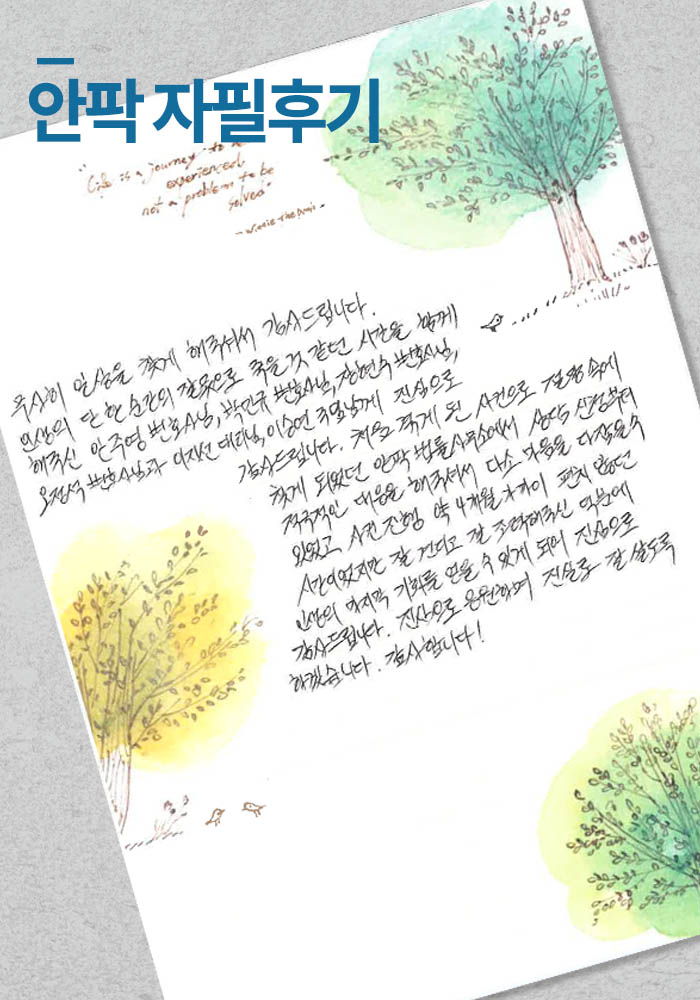 안팍 자필후기
"Life is a journey to be
experienced,
not a problem to be
solved"
- Winnie the Pooh -
무사히 일상을 찾게 해주셔서 감사드립니다.
인생의 단 한 순간의 잘못으로 죽을것 같던 시간을 함께
해주신 안주영 변호사님, 박민규 변호사님, 장현수 변호사님,
오정석 변호사님과 이지선 대리님, 이승연 주임님께 진심으로
감사드립니다. 처음 겪게 된 사건으로 절망 속에
찾게 되었던 안팍 법률사무소에서 상담 신청부터
적극적인 대응을 해주셔서 다소 마음을 다잡을 수
있었고, 사건진행 약 4개월 차까지 편치 않았던
시간이었지만 잘 견디고 잘 조력해주신 덕분에
인생의 마지막 기회를 얻을 수 있게 되어 진심으로
감사드립니다. 진심으로 응원하며 진실로 잘 살도록
하겠습니다. 감사합니다!